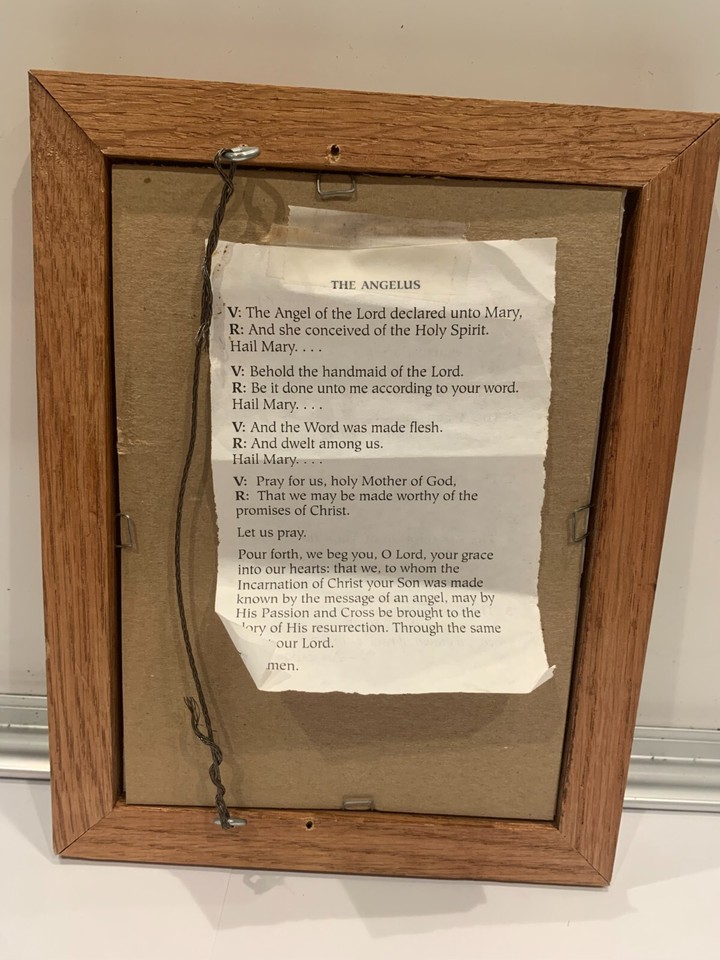 THE ANGELUS
V: The Angel of the Lord declared unto Mary,
R: And she conceived of the Holy Spirit.
Hail Mary. . . .
V: Behold the handmaid of the Lord.
R: Be it done unto me according to your word.
Hail Mary. . . .
V: And the Word was made flesh.
R: And dwelt among us.
Hail Mary. . . .
V: Pray for us, holy Mother of God,
R: That we may be made worthy of the
promises of Christ.
Let us pray.
Pour forth, we beg you, O Lord, your grace
into our hearts: that we, to whom the
Incarnation of Christ your Son was made
known by the message of an angel, may by
His Passion and Cross be brought to the
lory of His resurrection. Through the same
our Lord.
men.